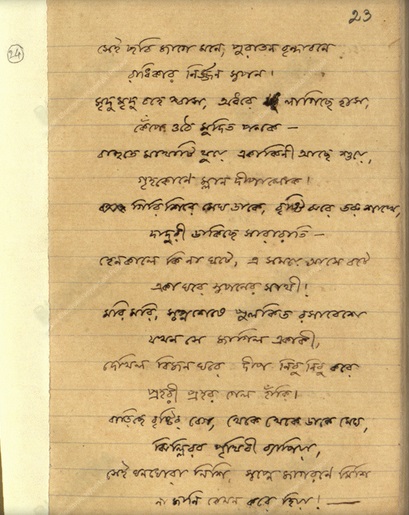 23
24
সেই ছবি জাগে মনে, পুরাতন বৃন্দাবনে
রাধিকার নির্জ্জন স্বপন।
মৃদু মৃদু বহে শ্বাস, অধরে লাগিছে হাস,
কেঁপে উঠে মুদিত পলক—
বাহুতে মাথাটি থুয়ে একাকিনী আছে শুয়ে,
গৃহকোণে ম্লান দীপালোক।
গিরিশিরে মেঘ ডাকে, বৃষ্টি ঝরে তরু শাখে,
দাদুরী ডাকিছে সারারাতি—
হেনকালে কি না ঘটে, এ সময়ে আসে বটে
একা ঘরে স্বপনের সাথী।
মরি মরি, স্বপ্নশেষে পুলকিত রসাবেশে
যখন সে জাগিল একাকী,
দেখিল বিজন ঘরে দীপ নিবু নিবু করে
প্রহরী প্রহর গেল হাঁকি।
বাড়িছে বৃষ্টির বেগ, থেকে থেকে ডাকে মেঘ,
ঝিল্লিরব পৃথিবী ব্যাপিয়া,
সেই ঘনঘোরা নিশি স্বপ্নে জাগরণে মিশি
না জানি কেমন করে হিয়া।